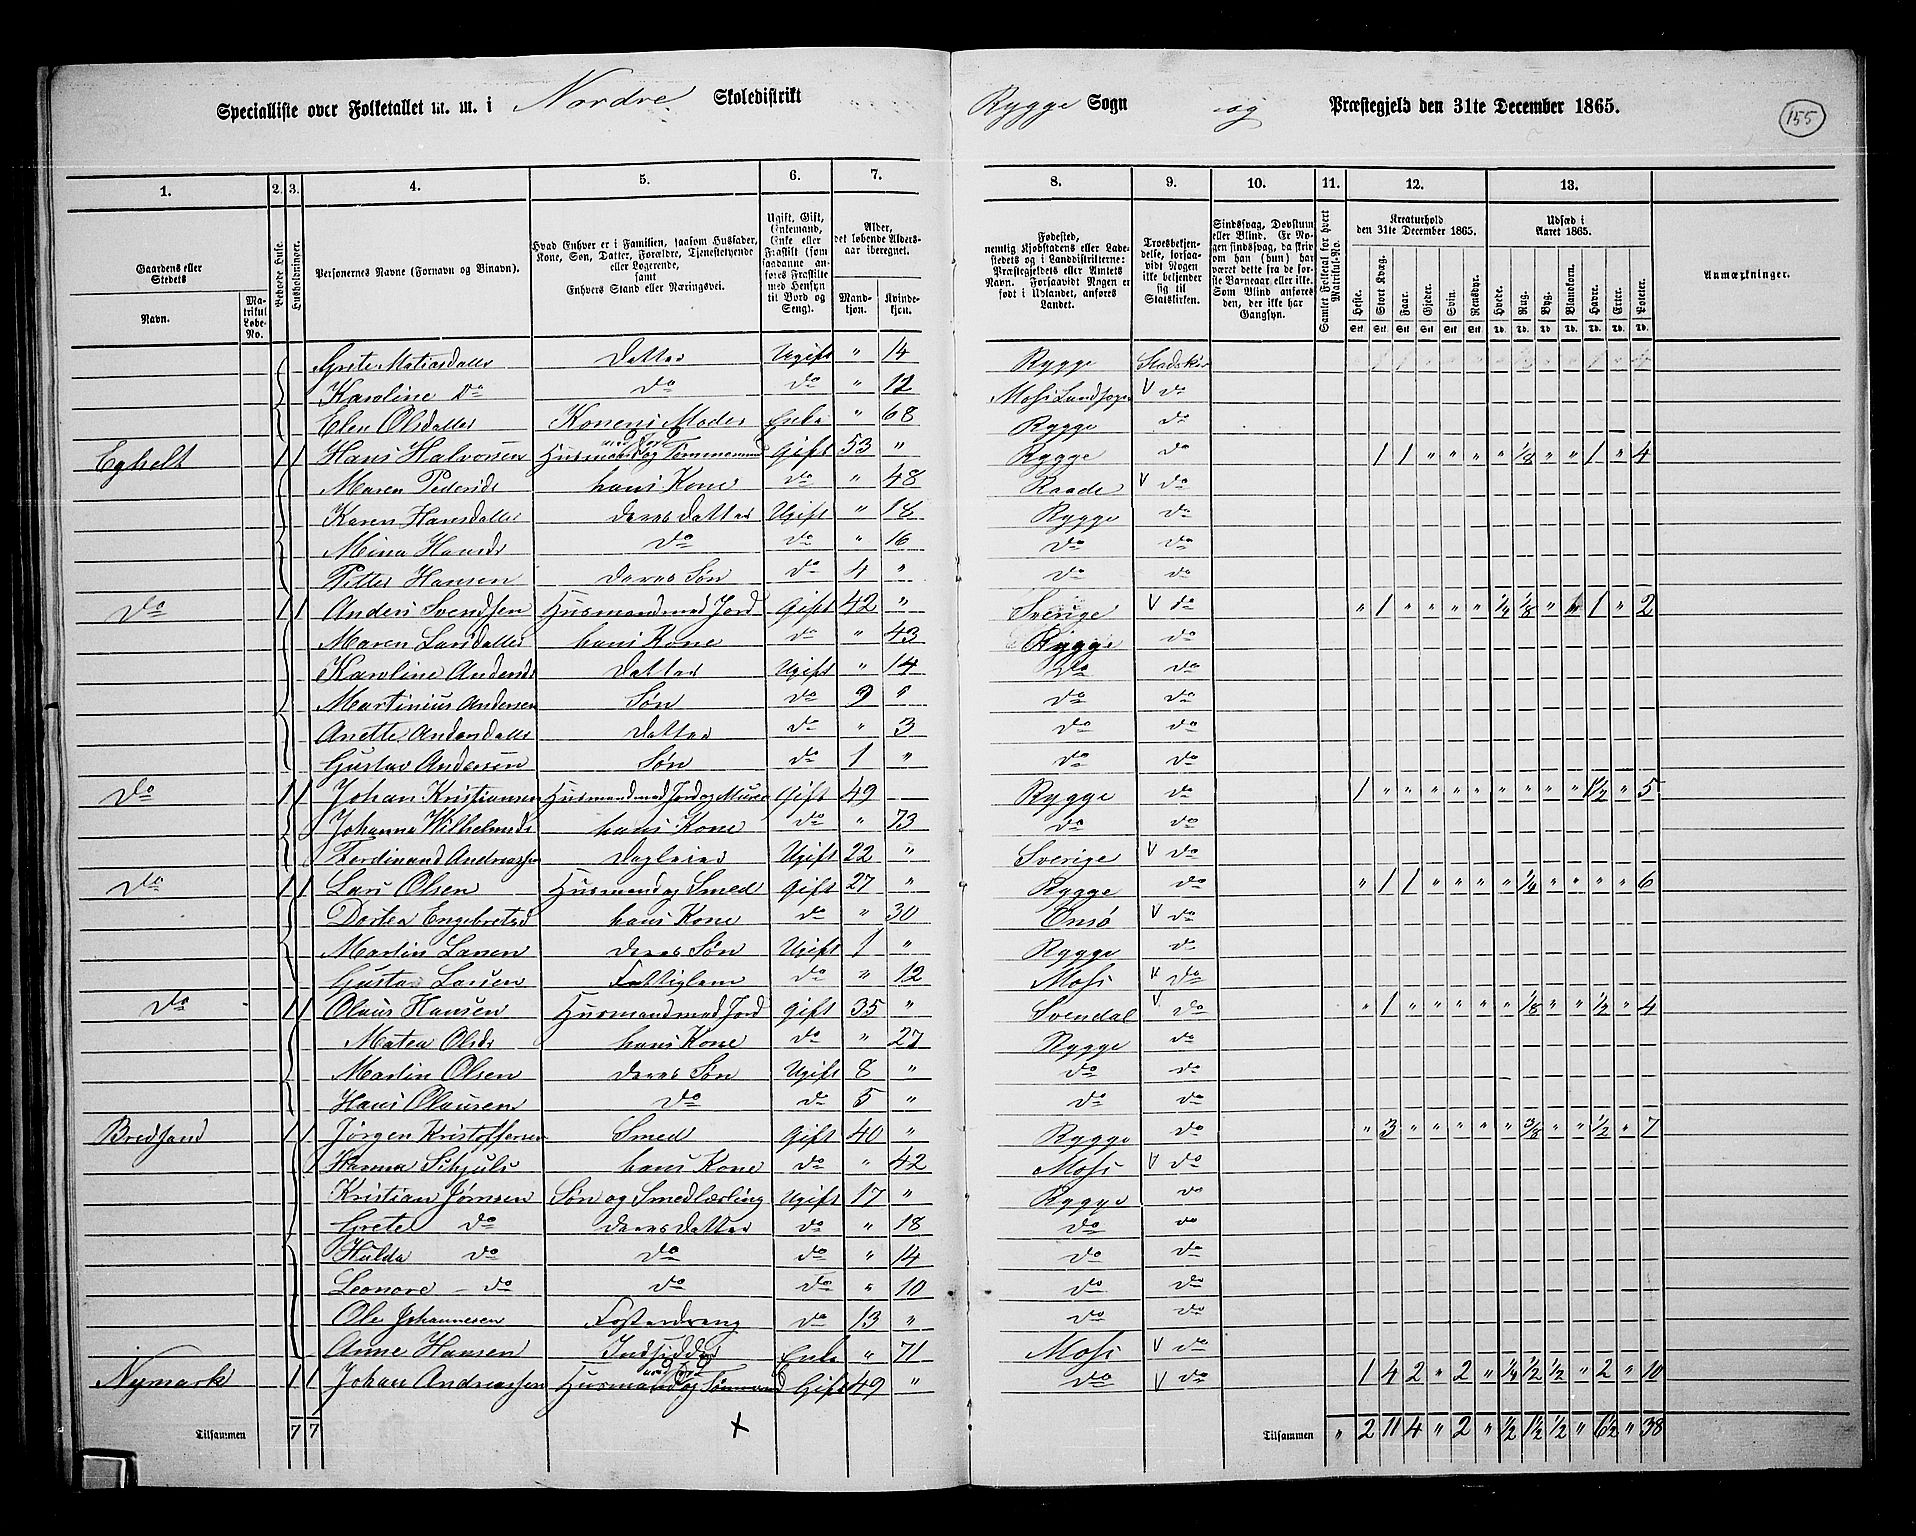 Specialliste over Folketallet m. m. i Nordre Skoledistrikt Rygge Sogn og Præstegjeld den 31te December 1865. 155
1. 2. 3. 4. 5. 6. 7. 8. 9. 10. 11. 12. 13.
Gaardens eller Stedets Navn. Matrikul Løbe-No. Beboede Huse. Husholdninger. Personernes Navne (Fornavn og Binavn). Hvad Enhver er i Familien, saasom Husfader, Kone, Søn, Datter, Forældre, Tjenestetyende eller Logerende, samt Enhvers Stand eller Næringsvei. Ugift, Gift, Enkemand, Enke eller Fraskilt (som saadanne anføres Fraskilte med Hensyn til Bord og Seng). Alder, det løbende Aldersaar iberegnet. Mandkjøn. Kvindekjøn.
Fødested, nemlig Kjøbstadens eller Ladestedets og i Landdistrikterne: Præstegjeldets eller Amtets Navn. Forsaavidt Nogen er født i Udlandet, anføres Landet. Troesbekjendelse, forsaavidt Nogen ikke bekjender sig til Statskirken. Sindssvag, Døvstum eller Blind. Er Nogen sindssvag, da skriv om han (hun) har været dette fra de første Barneaar eller ikke. Som Blind anføres den, der ikke har Gangsyn. Samlet Folketal for hvert Matrikul-No. Kreaturhold den 31te December 1865. Udsæd i Aaret 1865. Anmærkninger.
Heste. Stort Kvæg. Faar. Gjeder. Svin. Rensdyr. Hvede. Rug. Byg. Blandkorn. Havre. Erter. Poteter.
Stk. Stk. Stk. Stk. Stk. Stk. Td. Td. Td. Td. Td. Td. Td.
Grete Matiasdatter Datter Ugift " 14 Rygge
Karoline Do Do Do " 12 Do
Elen Olsdatter Konens Moder Enke " 68 Rygge Do
Eghelt 1 1 Hans Halvorsen Husmand med Jord og Tømmermand Gift 53 " Rygge Do 1 1 " " " " 1/8 " " 1 " 4
Maren Pedersd. hans Kone Do " 48 Raade V Do
Karen Hansdatter deres Datter Ugift " 18 Rygge Do
Mina Hansd. Do Do " 16 Do Do
Petter Hansen deres Søn Do 4 " Do Do
Do 1 1 Anders Svendsen Husmand med Jord Gift 42 " Sverige V Do " 1 " " " " 1/4 1/8 " " 1 " 2
Maren Larsdatter hans Kone Do " 43 Rygge Do
Karoline Andersd. Datter Ugift " 14 Do Do
Martinius Andersen Søn Do 9 " Do Do
Anette Andersdatter Datter Do " 3 Do Do
Gustav Andersen Søn Do 1 " Do Do
Do 1 1 Johan Kristiansen Husmand med Jord og Murer Gift 49 Rygge Do 1 " " " " " " " " " 1/2 " 5
Johanna Wilhelmsd. hans Kone Do " 73 Do Do
Ferdinand Andreassen Ugift 22 " Sverige V Do
Do 1 1 Lars Olsen Husmand og Smed Gift 27 " Rygge Do " 1 1 " " " " 1/4 " " " " 6
Dortea Engebretsd hans Kone Do " 30 Onsø V Do
Martin Larsen deres Søn Ugift 1 " Rygge Do
Gustav Larsen Fattiglem Do " 12 Moss V Do
Do 1 1 Olaus Hansen Husmand med Jord Gift 35 " Svendal V Do " 1 " " " " " 1/8 " " 1/2 " 4
Matea Olsd. hans Kone Do " 27 Rygge Do
Martin Olsen deres Søn Ugift 8 " Do Do
Hans Olausen Do Do 5 " Do Do
Bredsand 1 1 Jørgen Kristoffersen Smed Gift 40 " Rygge Do " 3 " " " " " 3/8 " " 1/2 " 7
Hanna hans Kone Do " 42 Moss V Do
Kristian Jørnsen Søn og Smedlærling Ugift 17 " Rygge Do
Grete Do deres Datter Do " 18 Do Do
Hulda Do Do Do " 14 Do Do
Leonore Do Do Do " 10 Do Do
Ole Johannesen Fosterdreng Do 13 " Do Do
Anne Hansen Indsidder Enke " 71 Moss V Do
Nymark 1 1 Johan Andreassen Husmand med Jord og Gift 49 " Do V Do 1 4 2 " 2 " 1/4 1/2 1/2 " 2 " 10
Tilsammen 7 7 Tilsammen " 2 11 4 " 2 " 1/2 1 1/2 1/2 " 6 1/2 " 38